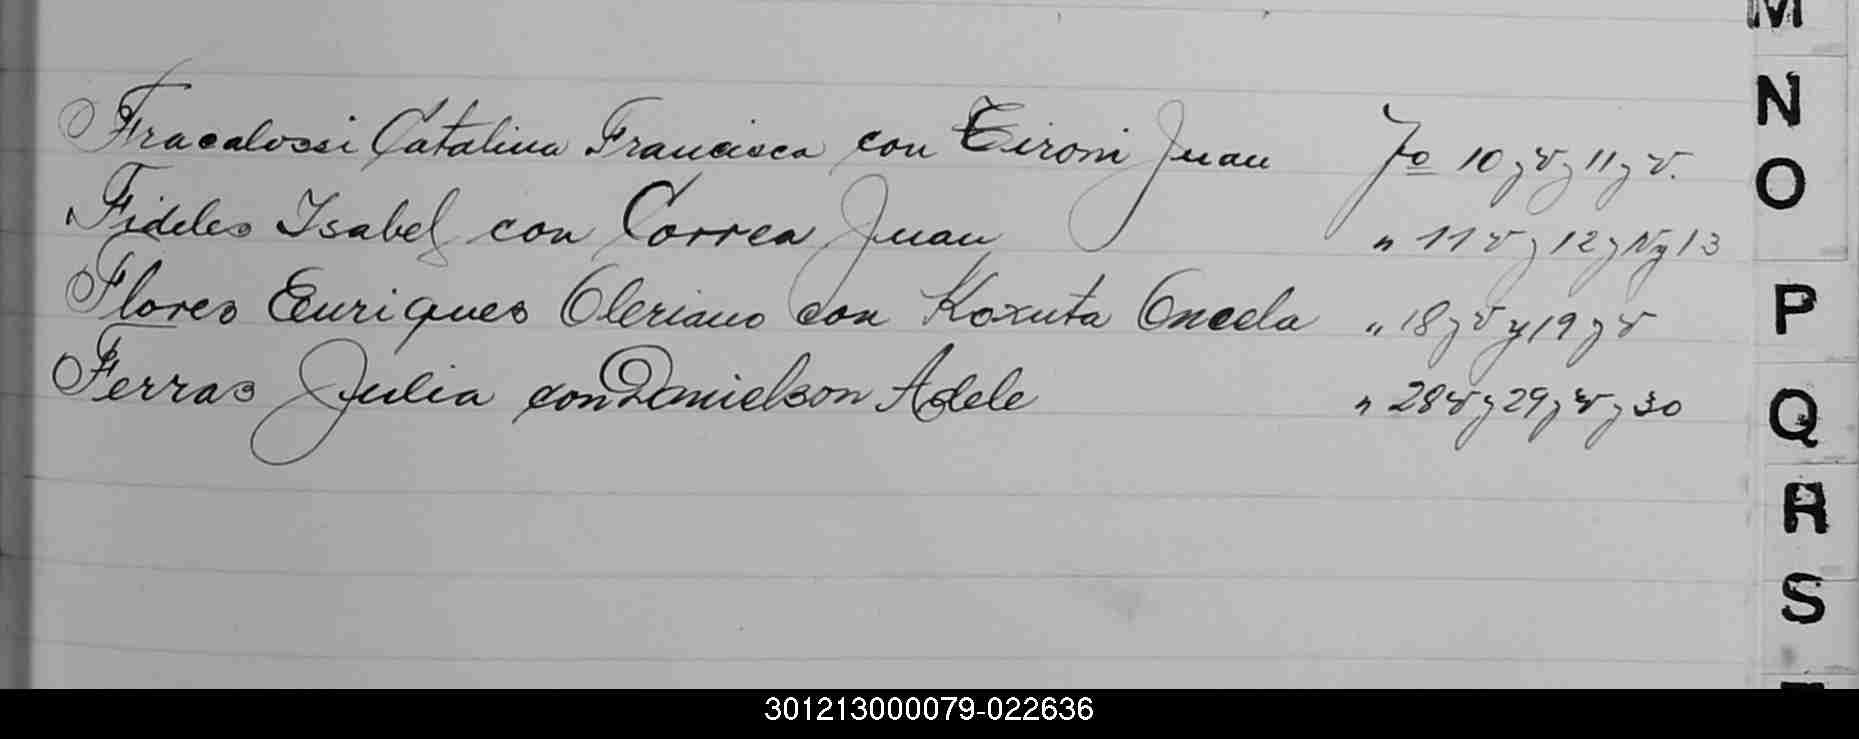 Fracalossi Catalina Francisca con Tironi Juan Fo 10 y v y 11 y v.
Fideles Isabel con Correa Juan " 11 v y 12 y v y 13
Flores Enriques Oleriano con Koxuta Oncela " 18 y v y 19 y v
Ferras Julia con Danielson Adele " 28 v y 29 y v y 30
M
N
O
P
Q
R
S
301213000079-022636